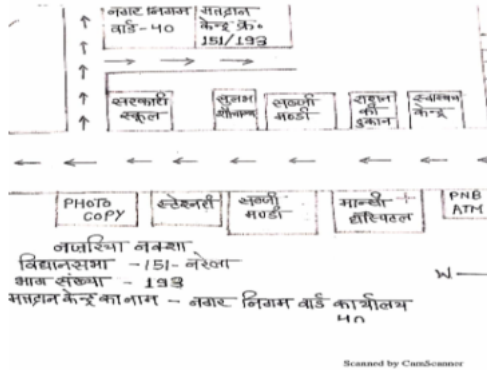 नगर निगम
वार्ड-40
मतदान
केन्द्र क्र.
151/193
सरकारी
स्कूल
सुलभ
शौचालय
सब्जी
मण्डी
राशन
की
दुकान
स्वास्थ्य
केन्द्र
PHOTO
COPY
स्टेशनरी
सब्जी
मण्डी
मान्सी
हॉस्पिटल
PNB
ATM
नजरिया नक्शा
विधानसभा - 151- नरेला
भाग संख्या - 193
मतदान केन्द्र का नाम - नगर निगम वार्ड कार्यालय
40
W
Scanned by CamScanner